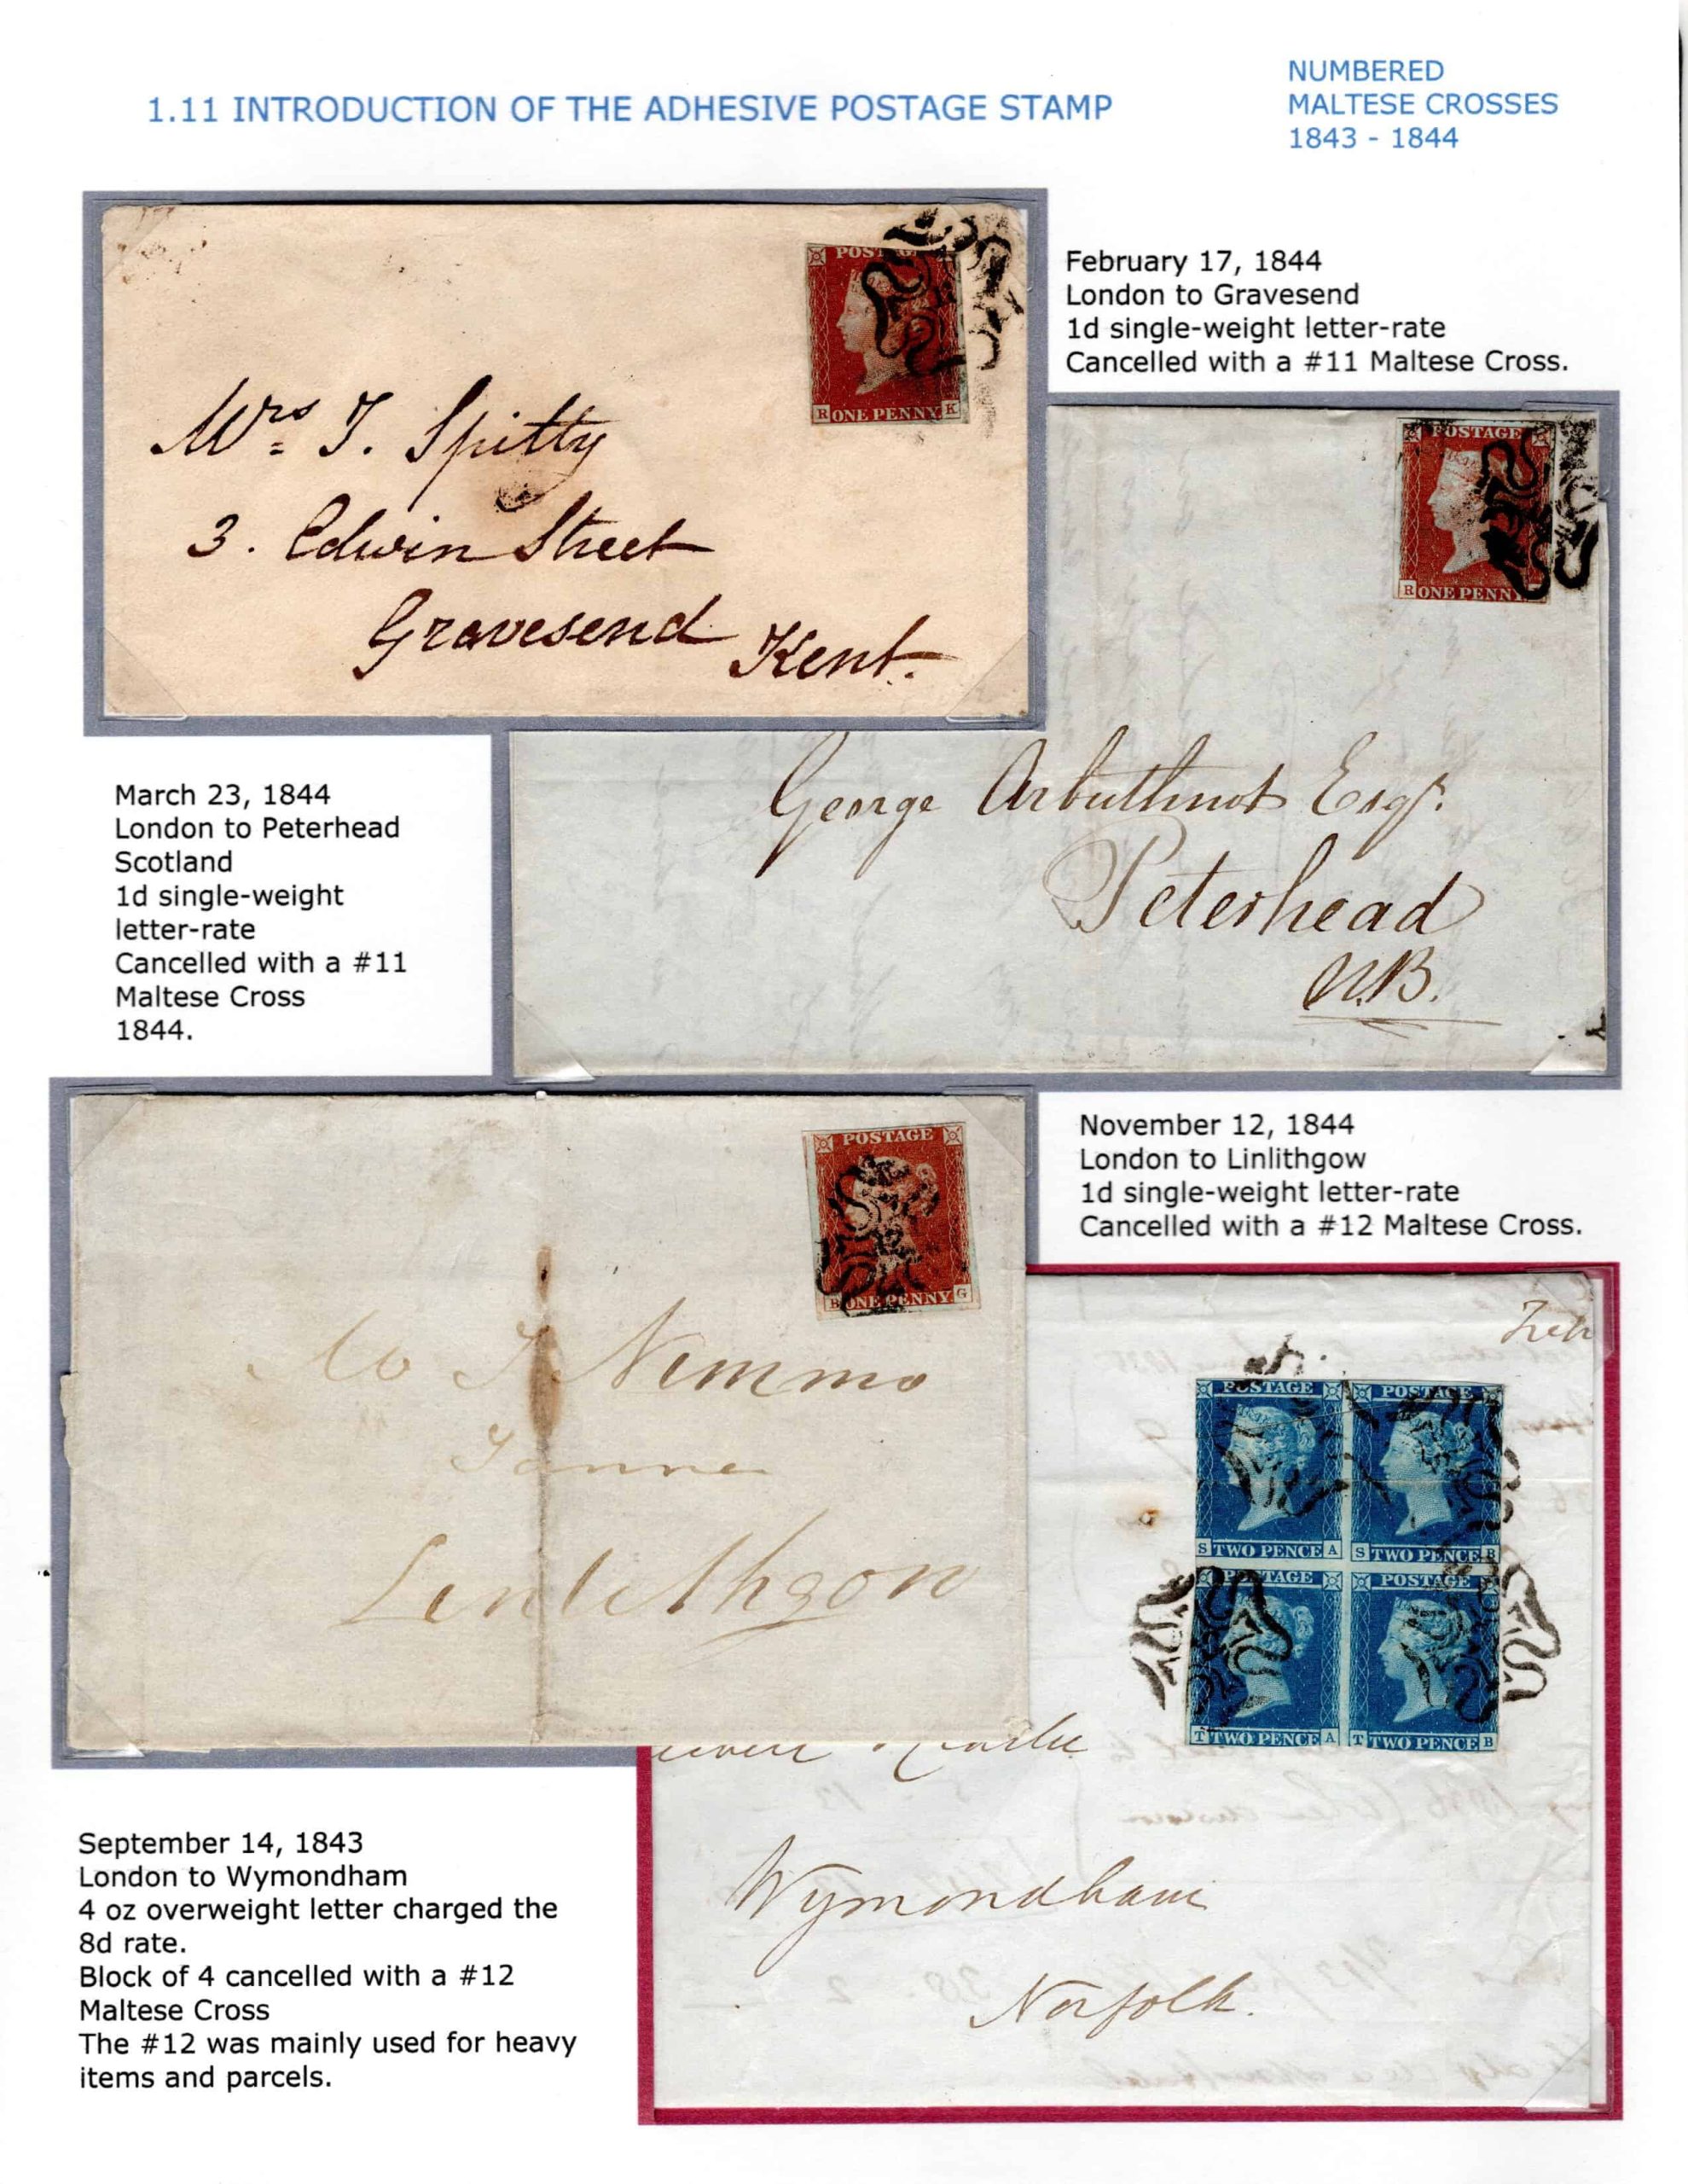 1.11 INTRODUCTION OF THE ADHESIVE POSTAGE STAMP
NUMBERED
MALTESE CROSSES
1843 - 1844
February 17, 1844
London to Gravesend
1d single-weight letter-rate
Cancelled with a #11 Maltese Cross.
R ONE PENNY K
Mrs T. Spitty
3. Edwin Street
Gravesend Kent.
POSTAGE
R ONE PENNY
George Arbuthnot Esqr.
Peterhead
N.B.
March 23, 1844
London to Peterhead
Scotland
1d single-weight
letter-rate
Cancelled with a #11
Maltese Cross
1844.
November 12, 1844
London to Linlithgow
1d single-weight letter-rate
Cancelled with a #12 Maltese Cross.
POSTAGE
B ONE PENNY G
Nimmo
Linlithgow
POSTAGE POSTAGE
S TWO PENCE A S TWO PENCE B
POSTAGE POSTAGE
T TWO PENCE A T TWO PENCE B
Wymondham
Norfolk.
September 14, 1843
London to Wymondham
4 oz overweight letter charged the
8d rate.
Block of 4 cancelled with a #12
Maltese Cross
The #12 was mainly used for heavy
items and parcels.